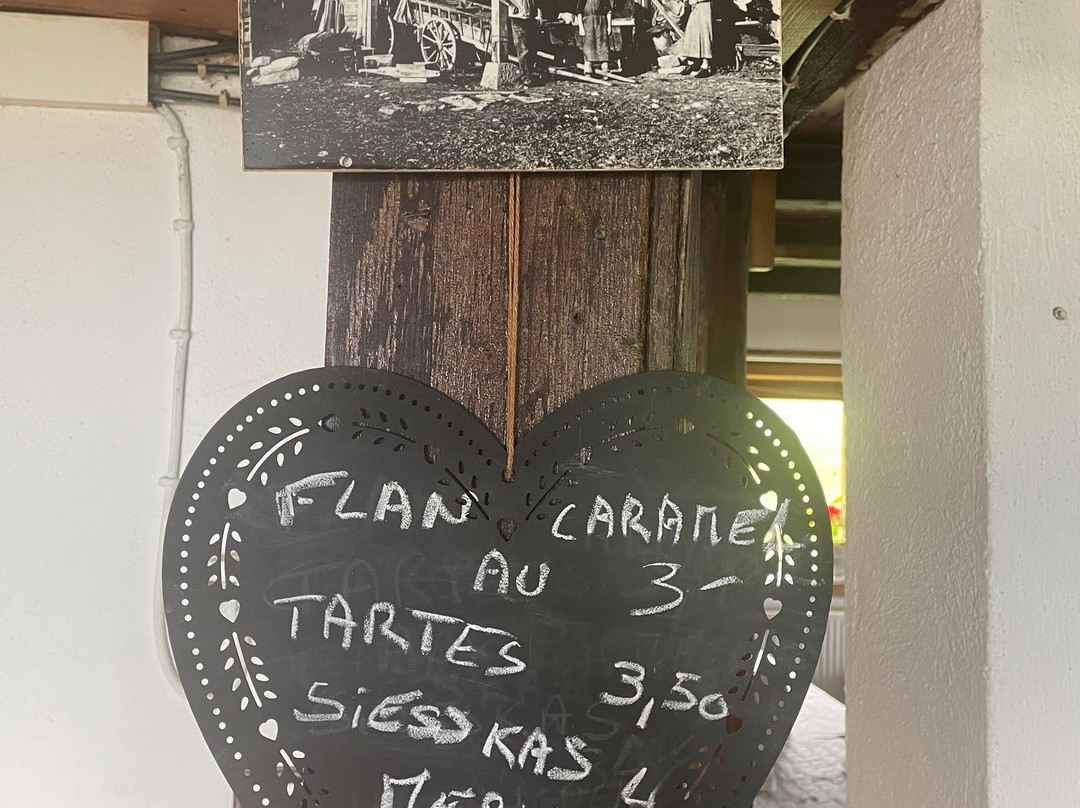 FLAN CARAMEL
AU 3-
TARTES
3,50
SiESSKAS
4